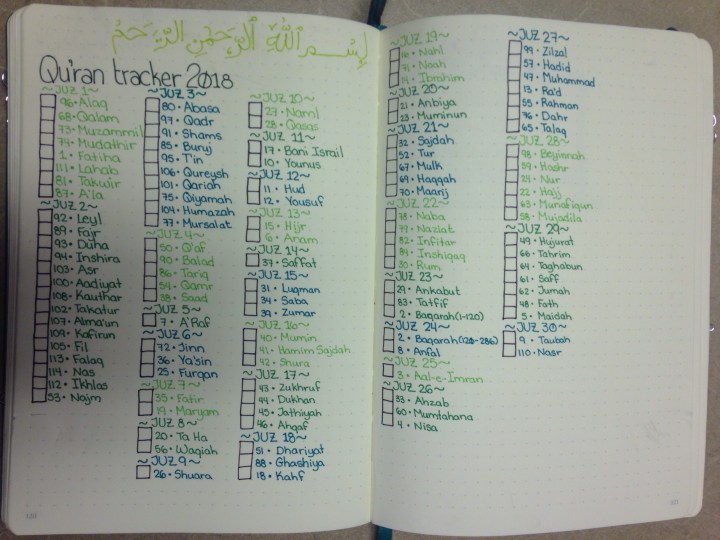 بِسْمِ ٱللَّهِ ٱلرَّحْمَٰنِ ٱلرَّحِيمِ
Qu'ran tracker 2018
~JUZ 1~
96 • Alaq
68 • Qalam
73 • Muzammil
74 • Mudathir
1 • Fatiha
111 • Lahab
81 • Takwir
87 • A'la
~JUZ 2~
92 • Leyl
89 • Fajr
93 • Duha
94 • Inshira
103 • Asr
100 • Aadiyat
108 • Kauthar
102 • Takatur
107 • Alma'un
109 • Kafirun
105 • Fil
113 • Falaq
114 • Nas
112 • Ikhlas
53 • Najm
~JUZ 3~
80 • Abasa
97 • Qadr
91 • Shams
85 • Buruj
95 • T'in
106 • Qureysh
101 • Qariah
75 • Qiyamah
104 • Humazah
77 • Mursalat
~JUZ 4~
50 • Q'af
90 • Balad
86 • Tariq
54 • Qamr
38 • Saad
~JUZ 5~
7 • A'Raf
~JUZ 6~
72 • Jinn
36 • Ya'sin
25 • Furqan
~JUZ 7~
35 • Fatir
19 • Maryam
~JUZ 8~
20 • Ta Ha
56 • Waqiah
~JUZ 9~
26 • Shuara
~JUZ 10~
27 • Naml
28 • Qasas
~JUZ 11~
17 • Bani Israil
10 • Younus
~JUZ 12~
11 • Hud
12 • Yousuf
~JUZ 13~
15 • Hijr
6 • Anam
~JUZ 14~
37 • Saffat
~JUZ 15~
31 • Luqman
34 • Saba
39 • Zumar
~JUZ 16~
40 • Mumin
41 • Hamim Sajdah
42 • Shura
~JUZ 17~
43 • Zukhruf
44 • Dukhan
45 • Jathiyah
46 • Ahqaf
~JUZ 18~
51 • Dhariyat
88 • Ghashiya
18 • Kahf
~JUZ 19~
16 • Nahl
71 • Noah
14 • Ibrahim
~JUZ 20~
21 • Anbiya
23 • Muminun
~JUZ 21~
32 • Sajdah
52 • Tur
67 • Mulk
69 • Haqqah
70 • Maarij
~JUZ 22~
78 • Naba
79 • Naziat
82 • Infitar
84 • Inshiqaq
30 • Rum
~JUZ 23~
29 • Ankabut
83 • Tatfif
2 • Baqarah(1-120)
~JUZ 24~
2 • Baqarah(120-286)
8 • Anfal
~JUZ 25~
3 • Aal-e-Imran
~JUZ 26~
33 • Ahzab
60 • Mumtahana
4 • Nisa
~JUZ 27~
99 • Zilzal
57 • Hadid
47 • Muhammad
13 • Ra'd
55 • Rahman
76 • Dahr
65 • Talaq
~JUZ 28~
98 • Beyinnah
59 • Hashr
24 • Nur
22 • Hajj
63 • Munafiqun
58 • Mujadila
~JUZ 29~
49 • Hujurat
66 • Tahrim
64 • Taghabun
61 • Saff
62 • Jumah
48 • Fath
5 • Maidah
~JUZ 30~
9 • Taubah
110 • Nasr